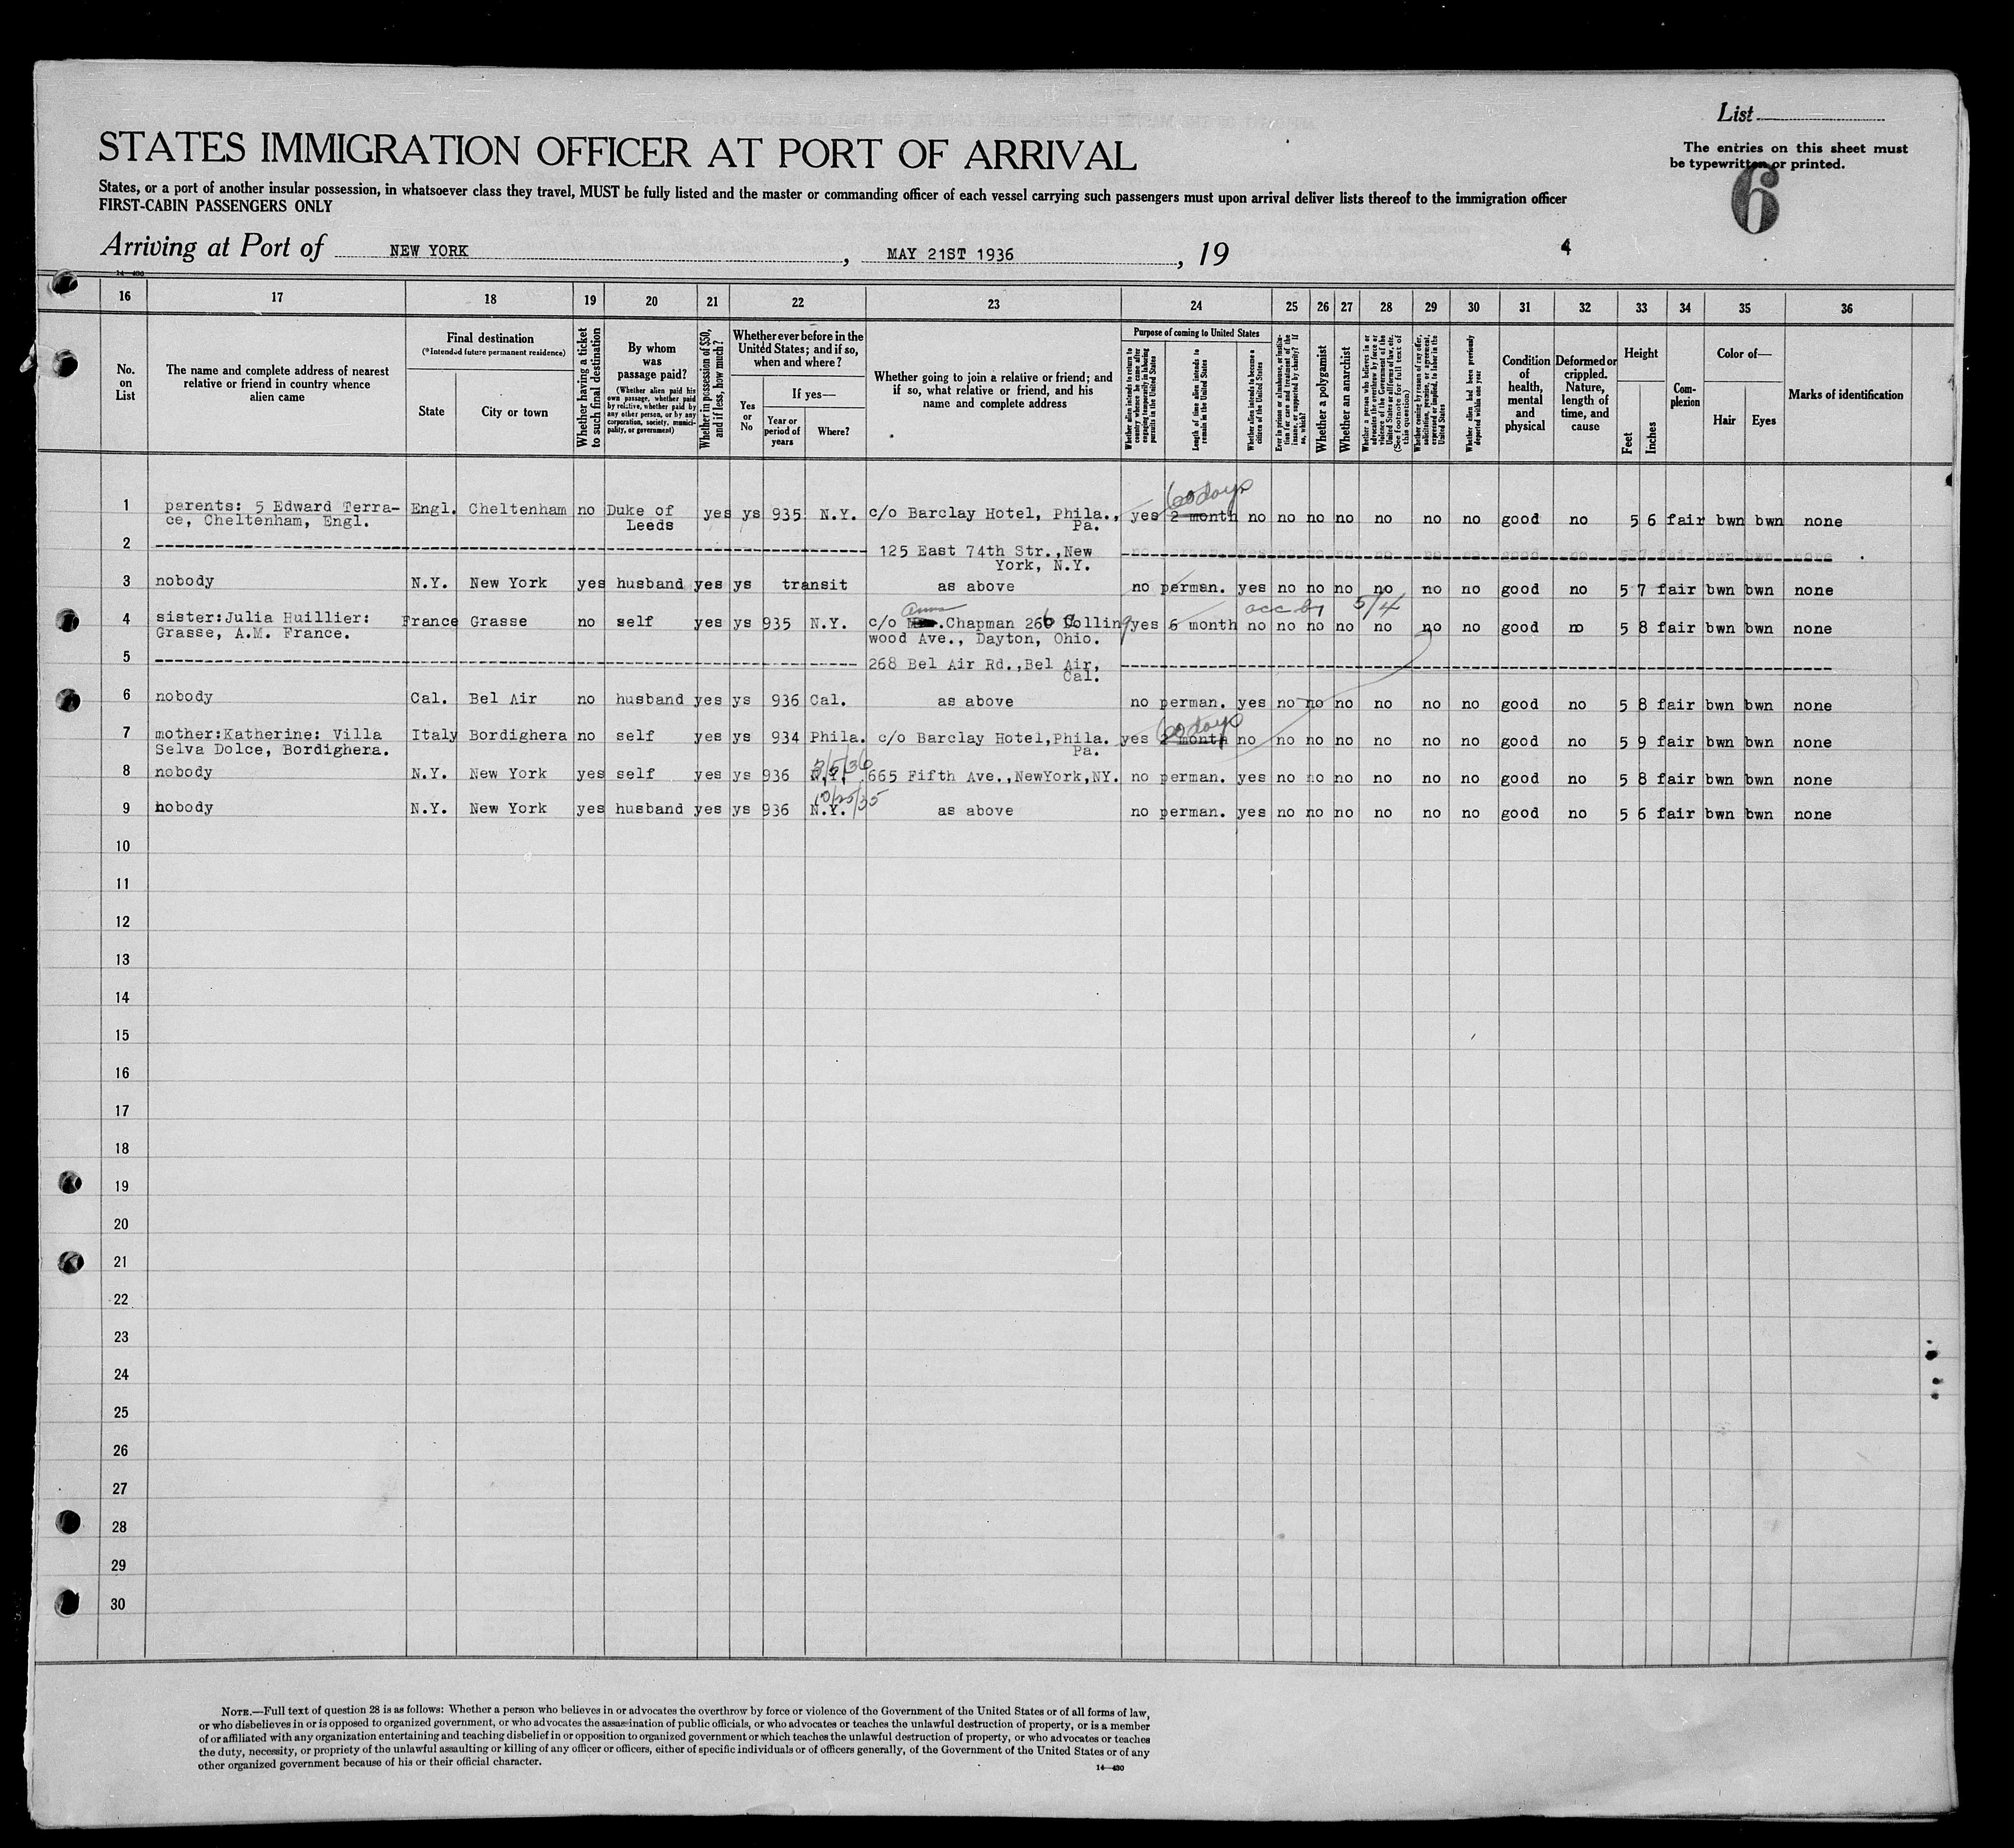 List
The entries on this sheet must
be typewritten or printed.
6
STATES IMMIGRATION OFFICER AT PORT OF ARRIVAL
States, or a port of another insular possession, in whatsoever class they travel, MUST be fully listed and the master or commanding officer of each vessel carrying such passengers must upon arrival deliver lists thereof to the immigration officer
FIRST-CABIN PASSENGERS ONLY
Arriving at Port of NEW YORK, MAY 21ST 1936, 19 4
14—430
16 17 18 19 20 21 22 23 24 25 26 27 28 29 30 31 32 33 34 35 36
No. on List
The name and complete address of nearest relative or friend in country whence alien came
Final destination
(*Intended future permanent residence)
State
City or town
Whether having a ticket to such final destination
By whom was passage paid?
(Whether alien paid his own passage, whether paid by relative, whether paid by any other person, or by any corporation, society, municipality, or government)
Whether in possession of $50, and if less, how much?
Whether ever before in the United States; and if so, when and where?
Yes or No
If yes—
Year or period of years
Where?
Whether going to join a relative or friend; and if so, what relative or friend, and his name and complete address
Purpose of coming to United States
Whether alien intends to return to country whence he came after engaging temporarily in laboring pursuits in the United States
Length of time alien intends to remain in the United States
Whether alien intends to become a citizen of the United States
Ever in prison or almshouse, or institution for care and treatment of the insane, or supported by charity? If so, which?
Whether a polygamist
Whether an anarchist
Whether a person who believes in or advocates the overthrow by force or violence of the Government of the United States or all forms of law, etc. (See footnote for full text of this question)
Whether coming by reason of any offer, solicitation, promise, or agreement, expressed or implied, to labor in the United States
Whether alien had been previously deported within one year
Condition of health, mental and physical
Deformed or crippled. Nature, length of time, and cause
Height
Feet
Inches
Complexion
Color of—
Hair
Eyes
Marks of identification
60 days
1 parents: 5 Edward Terra- Engl. Cheltenham no Duke of yes ys 935 N.Y. c/o Barclay Hotel, Phila., yes 2 month no no no no no no no good no 5 6 fair bwn bwn none
ce, Cheltenham, Engl. Leeds Pa.
2 125 East 74th Str.,New
York, N.Y.
3 nobody N.Y. New York yes husband yes ys transit as above no perman. yes no no no no no no good no 5 7 fair bwn bwn none
Anna acc by 5/4
4 sister:Julia Huillier: France Grasse no self yes ys 935 N.Y. c/o .Chapman 266 Colling yes 6 month no no no no no no no good no 5 8 fair bwn bwn none
Grasse, A.M. France. wood Ave., Dayton, Ohio.
5 268 Bel Air Rd.,Bel Air,
Cal.
6 nobody Cal. Bel Air no husband yes ys 936 Cal. as above no perman. yes no no no no no no good no 5 8 fair bwn bwn none
60 days
7 mother:Katherine: Villa Italy Bordighera no self yes ys 934 Phila. c/o Barclay Hotel,Phila. yes 2 month no no no no no no no good no 5 9 fair bwn bwn none
Selva Dolce, Bordighera. Pa.
3/5/36
8 nobody N.Y. New York yes self yes ys 936 N.Y. 665 Fifth Ave.,NewYork,NY. no perman. yes no no no no no no good no 5 8 fair bwn bwn none
10/25/35
9 nobody N.Y. New York yes husband yes ys 936 N.Y. as above no perman. yes no no no no no no good no 5 6 fair bwn bwn none
10
11
12
13
14
15
16
17
18
19
20
21
22
23
24
25
26
27
28
29
30
NOTE.—Full text of question 28 is as follows: Whether a person who believes in or advocates the overthrow by force or violence of the Government of the United States or of all forms of law,
or who disbelieves in or is opposed to organized government, or who advocates the assassination of public officials, or who advocates or teaches the unlawful destruction of property, or is a member
of or affiliated with any organization entertaining and teaching disbelief in or opposition to organized government or which teaches the unlawful destruction of property, or who advocates or teaches
the duty, necessity, or propriety of the unlawful assaulting or killing of any officer or officers, either of specific individuals or of officers generally, of the Government of the United States or of any
other organized government because of his or their official character.
14—430